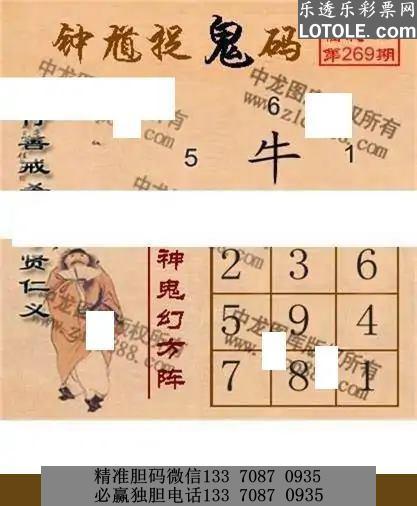 乐透乐彩票网
LOTOLE.COM
钟馗捉鬼码
第269期
6
5 牛 1
善戒
贤仁义
神鬼幻方阵
2 3 6
5 9 4
7 8 1
中龙图库版权所有
精准胆码微信133 7087 0935
必赢独胆电话133 7087 0935